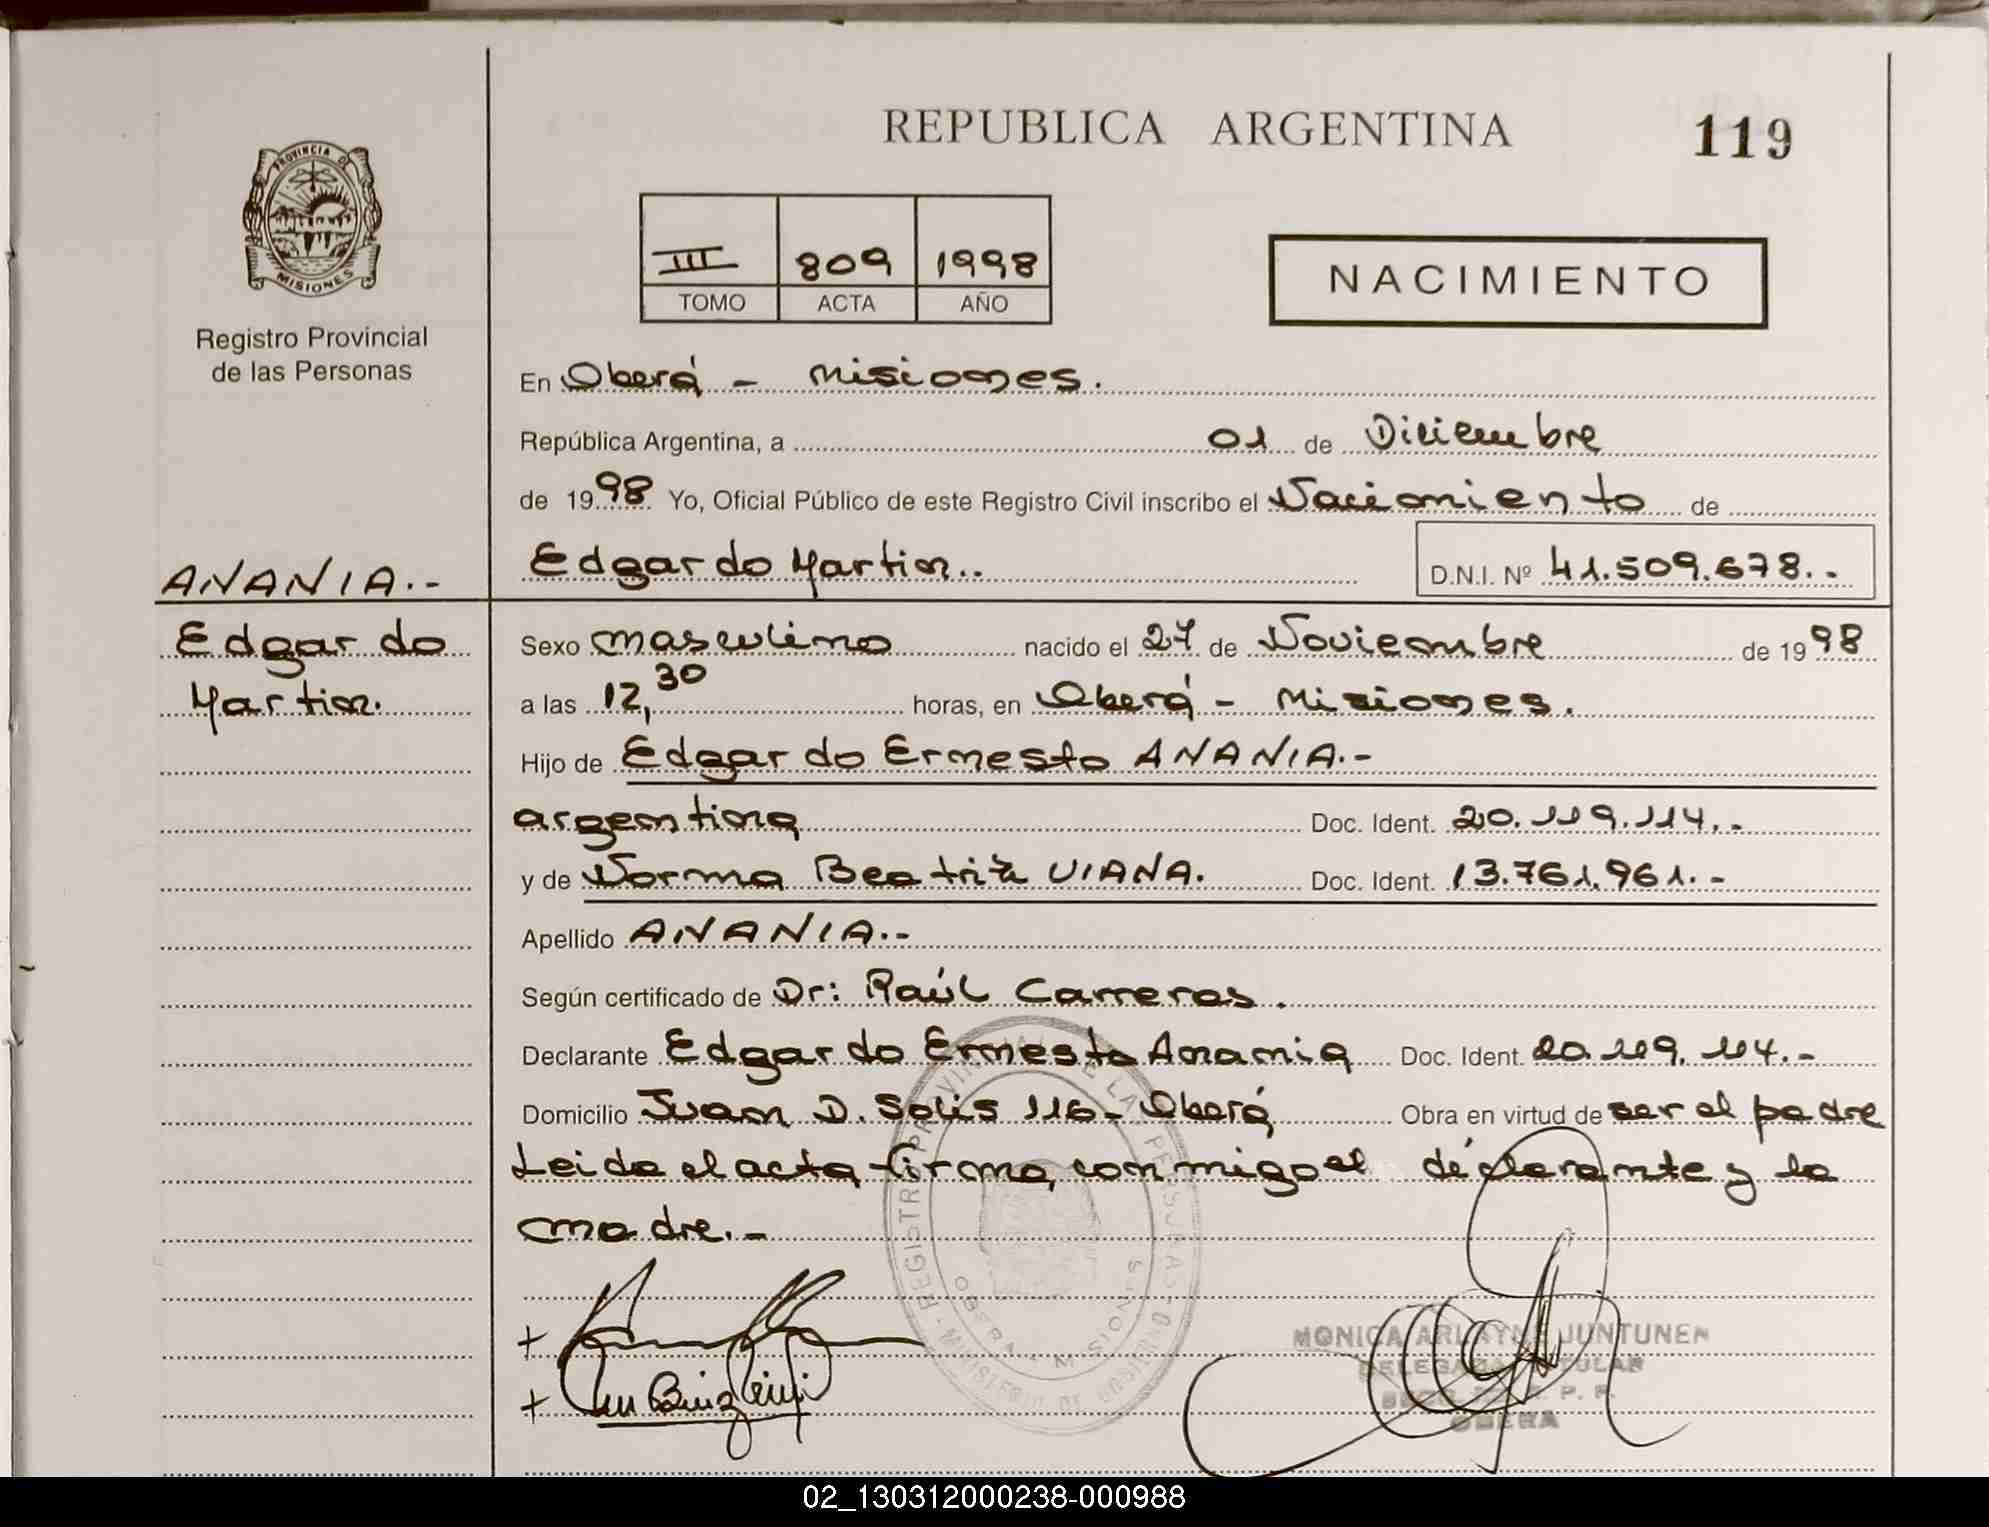 REPUBLICA ARGENTINA
119
PROVINCIA DE
MISIONES
Registro Provincial
de las Personas
III 809 1998
TOMO ACTA AÑO
NACIMIENTO
En Oberá - Misiones.
República Argentina, a 01 de Diciembre
de 1998 Yo, Oficial Público de este Registro Civil inscribo el Nacimiento de
ANANIA.-
Edgardo Martin..
D.N.I. Nº 41.509.678.-
Edgardo
Martin.
Sexo masculino nacido el 27 de Noviembre de 1998
a las 12,30 horas, en Oberá - Misiones.
Hijo de Edgardo Ernesto ANANIA.-
argentina Doc. Ident. 20.119.114.-
y de Norma Beatriz VIANA. Doc. Ident. 13.761.961.-
Apellido ANANIA.-
Según certificado de Dr: Raúl Carreras.
Declarante Edgardo Ernesto Anania Doc. Ident. 20.119.114.-
Domicilio Juan D. Solis 116- Oberá Obra en virtud de ser el padre
Leida el acta firma conmigo el declarante y la
madre.-
REGISTRO PROVINCIAL DE LAS PERSONAS
MINISTERIO DE GOBIERNO
OBERA - MISIONES
+
+
MONICA ARLAYNE JUNTUNEN
DELEGADA TITULAR
R. P. P.
OBERA
02_130312000238-000988